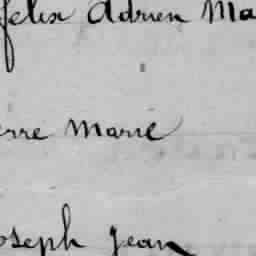 felix Adrien Ma
erre Marie
oseph Jean